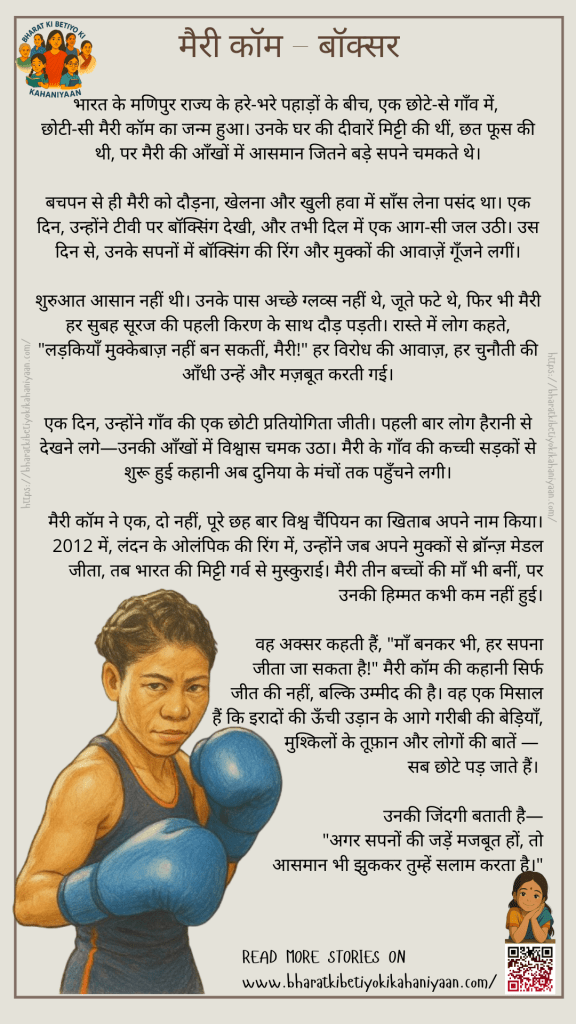 BHARAT KI BETIYO KI
KAHANIYAAN
मैरी कॉम – बॉक्सर
भारत के मणिपुर राज्य के हरे-भरे पहाड़ों के बीच, एक छोटे-से गाँव में,
छोटी-सी मैरी कॉम का जन्म हुआ। उनके घर की दीवारें मिट्टी की थीं, छत फूस की
थी, पर मैरी की आँखों में आसमान जितने बड़े सपने चमकते थे।
बचपन से ही मैरी को दौड़ना, खेलना और खुली हवा में साँस लेना पसंद था। एक
दिन, उन्होंने टीवी पर बॉक्सिंग देखी, और तभी दिल में एक आग-सी जल उठी। उस
दिन से, उनके सपनों में बॉक्सिंग की रिंग और मुक्कों की आवाज़ें गूँजने लगीं।
शुरुआत आसान नहीं थी। उनके पास अच्छे ग्लव्स नहीं थे, जूते फटे थे, फिर भी मैरी
हर सुबह सूरज की पहली किरण के साथ दौड़ पड़ती। रास्ते में लोग कहते,
"लड़कियाँ मुक्केबाज़ नहीं बन सकतीं, मैरी!" हर विरोध की आवाज़, हर चुनौती की
आँधी उन्हें और मज़बूत करती गई।
एक दिन, उन्होंने गाँव की एक छोटी प्रतियोगिता जीती। पहली बार लोग हैरानी से
देखने लगे—उनकी आँखों में विश्वास चमक उठा। मैरी के गाँव की कच्ची सड़कों से
शुरू हुई कहानी अब दुनिया के मंचों तक पहुँचने लगी।
मैरी कॉम ने एक, दो नहीं, पूरे छह बार विश्व चैंपियन का खिताब अपने नाम किया।
2012 में, लंदन के ओलंपिक की रिंग में, उन्होंने जब अपने मुक्कों से ब्रॉन्ज़ मेडल
जीता, तब भारत की मिट्टी गर्व से मुस्कुराई। मैरी तीन बच्चों की माँ भी बनीं, पर
उनकी हिम्मत कभी कम नहीं हुई।
वह अक्सर कहती हैं, "माँ बनकर भी, हर सपना
जीता जा सकता है!" मैरी कॉम की कहानी सिर्फ
जीत की नहीं, बल्कि उम्मीद की है। वह एक मिसाल
हैं कि इरादों की ऊँची उड़ान के आगे गरीबी की बेड़ियाँ,
मुश्किलों के तूफ़ान और लोगों की बातें —
सब छोटे पड़ जाते हैं।
उनकी जिंदगी बताती है—
"अगर सपनों की जड़ें मजबूत हों, तो
आसमान भी झुककर तुम्हें सलाम करता है।"
READ MORE STORIES ON
www.bharatkibetiyokikahaniyaan.com/
https://bharatkibetiyokikahaniyaan.com/
https://bharatkibetiyokikahaniyaan.com/